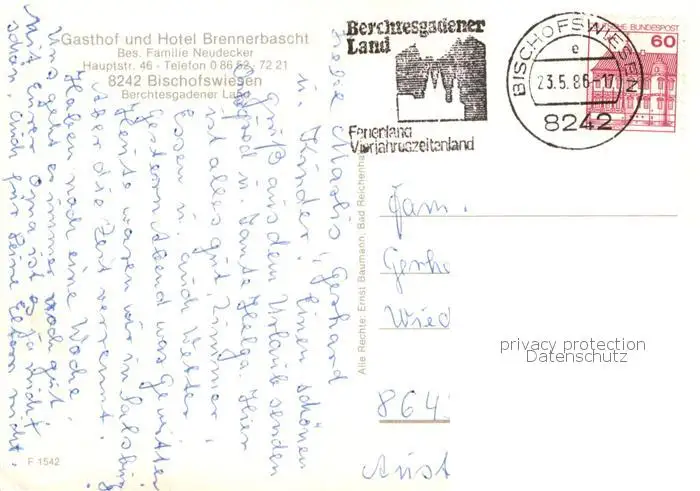 Gasthof und Hotel Brennerbascht
Bes. Familie Neudecker
Hauptstr. 46 - Telefon 0 86 52 - 72 21
8242 Bischofswiesen
Berchtesgadener Land
Berchtesgadener
Land
Ferienland
Vierjahreszeitenland
BISCHOFSWIESEN
e
23.5.86-17
8242
DEUTSCHE BUNDESPOST
60
Liebe Marlis, Gerhard
u. Kinder! Einen schönen
Gruß aus dem Urlaub senden
u. Tante Helga. Hier
ist alles gut Zimmer
Essen u. auch Wetter.
Gestern Abend war Gewitter
Heute waren wir in Salzburg
Aber die Zeit verrennt.
Haben noch eine Woche.
Uns geht es immer noch gut.
Mit eurer Oma ist es ja nicht
schön, auch für deine Eltern nicht.
Fam.
Gerh
Wied
864
Aust
Alle Rechte: Ernst Baumann, Bad Reichenha
F 1542
privacy protection
Datenschutz